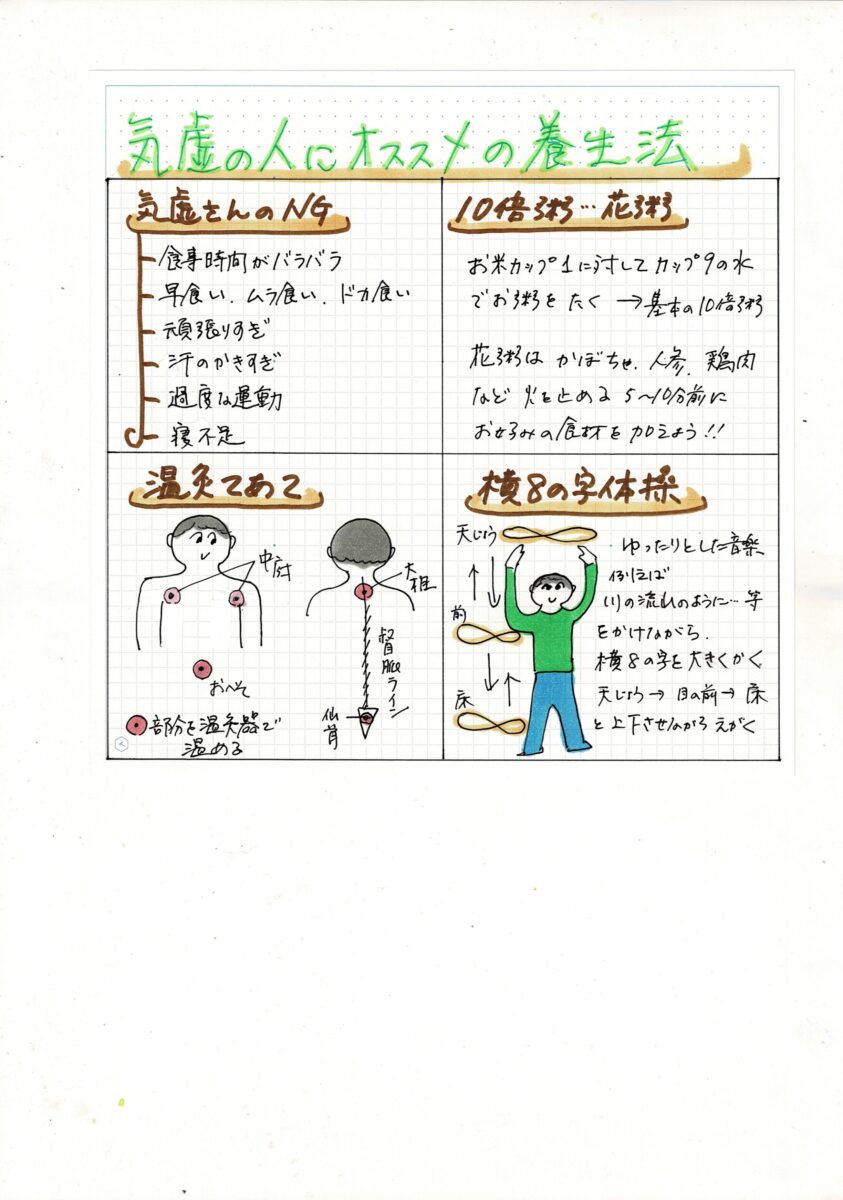 気虚の人にオススメの養生法
気虚さんのNG
食事時間がバラバラ
早食い、ムラ食い、ドカ食い
頑張りすぎ
汗のかきすぎ
過度な運動
寝不足
10倍粥…花粥
お米カップ1に対してカップ9の水
でお粥をたく→基本の10倍粥
花粥は かぼちゃ、人参、鶏肉
など 火を止める 5〜10分前に
お好みの食材を加えよう!!
温灸てあて
中府
おへそ
大椎
督脈ライン
仙骨
部分を温灸器で
温める
横8の字体操
天じょう
前
床
ゆったりとした音楽
例えば
川の流れのように…等
をかけながら、
横8の字を大きくかく
天じょう→目の前→床
と上下させながらえがく